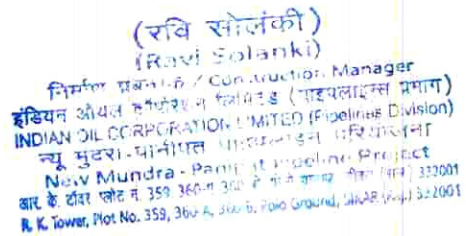 (रवि सोलंकी)
(Ravi Solanki)
निर्माण प्रबन्धक / Construction Manager
इंडियन ऑयल कॉर्पोरेशन लिमिटेड (पाइपलाइन्स प्रभाग)
INDIAN OIL CORPORATION LIMITED (Pipelines Division)
न्यू मुंदरा-पानीपत पाइपलाइन परियोजना
New Mundra - Panipat Pipeline Project
आर. के. टॉवर प्लोट नं. 359, 360-ए, 360 332001
R. K. Tower, Plot No. 359, 360-A, 360-B, Polo Ground, SIKAR (Raj.) 332001